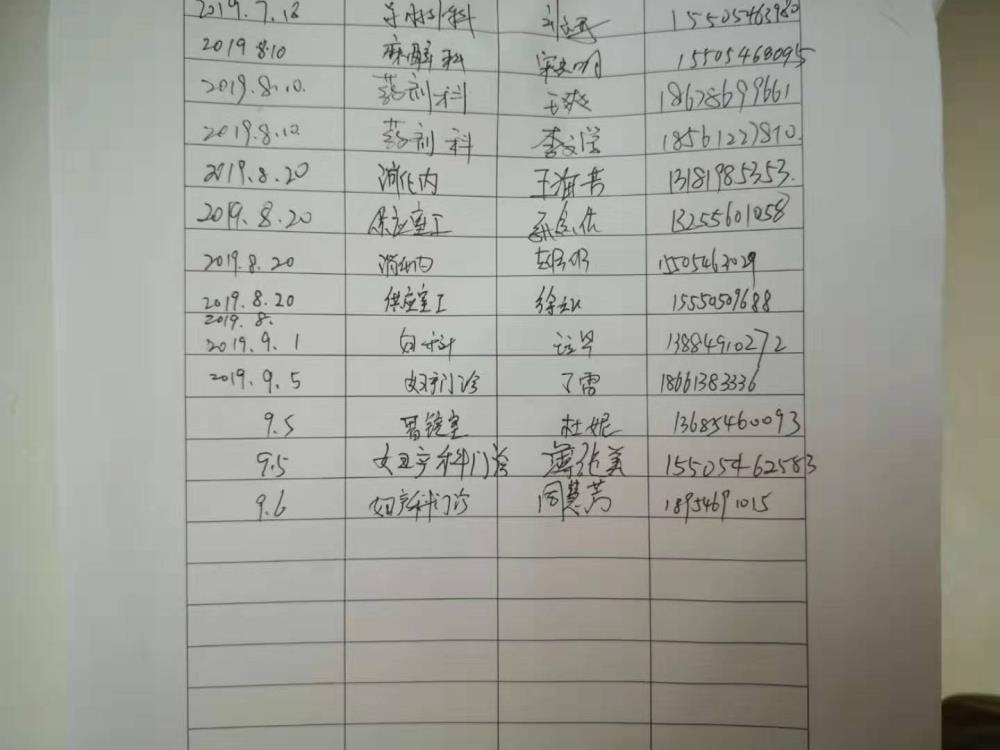 2019.7.18 科 15505463980
2019 8.10 麻醉科 15505468095
2019.8.10. 药剂科 王爽 18678699661
2019.8.10 药剂科 李文学 18561227810.
2019.8.20 消化内 王海书 13181985353.
2019.8.20 供应室工 13255601058
2019.8.20 消化内 15505463029
2019.8.20 供应室工 徐 15550509688
2019.8.
2019.9.1 妇科 13884910272
2019.9.5 妇产门诊 丁雷 18661383336
9.5 胃镜室 杜妮 13685460093
9.5 妇产科门诊 美 15505462583
9.6 妇产科门诊 周慧芳 18954691015